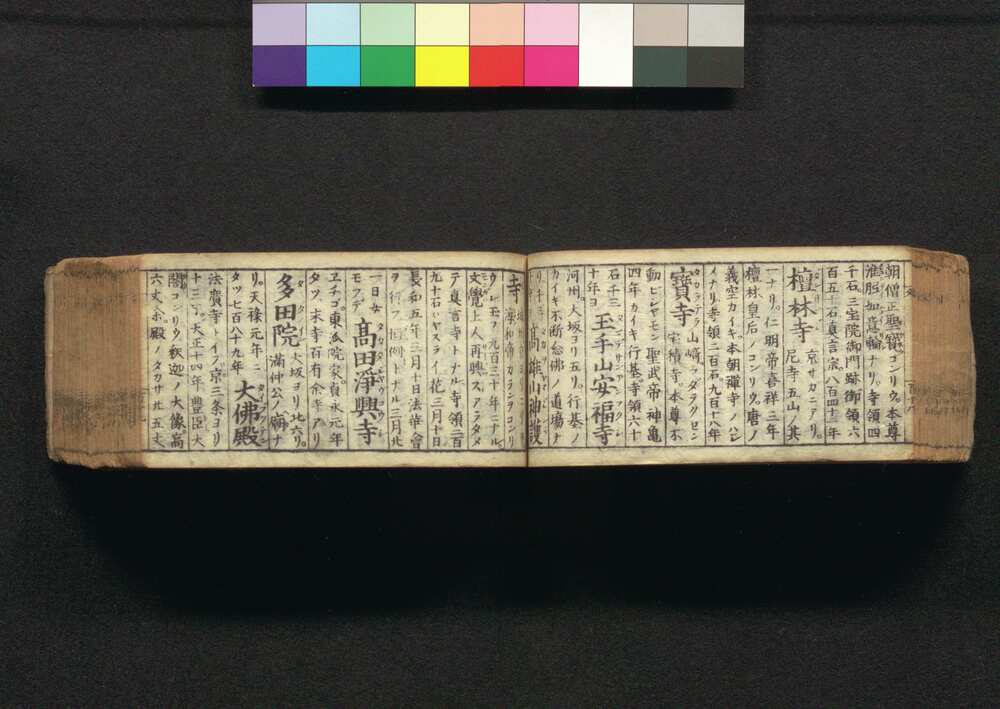 朝僧正聖宝コンリウ。本尊
准胝如意輪ナリ。寺領四
千石三宝院御門跡御領六
百五十石真言宗。八百四十三年
檀林寺 京サカニアリ。尼寺五山ノ其
一ナリ。仁明帝喜祥三年
檀林皇后ノコンリウ。唐ノ
義空カイキ。本朝禅寺ノハシ
メナリ。寺領二百石九百十八年
寶寺 山﨑。宝積寺。本尊不
動ビシヤモン聖武帝神亀
四年カイキ行基寺領六十
石千三十年ヨ 玉手山安福寺
河州。大坂ヨリ五リ。行基ノ
カイキ不断念佛ノ道場ナ
リ 高雄山神護
寺 淳和帝カランヲコンリ
ウレモフ九百三十年ニナル。
文覺上人再興スアラタメ
テ真言寺トナル寺領二百
九十石ヨヤスライ花三月十日
長和五年三月十日法華會
ヲ行フ恒例トナル三月北
一日女モフデ 髙田淨興寺
ヱチゴ。東派院家貞永元年
タツ末寺百有余ヶ寺アリ
多田院 大坂ヨリ北六リ。満仲公ノ廟ナ
リ。天禄元年ニ
タツ七百八十九年 大佛殿
法廣寺トイフ京三条ヨリ
十三丁。大正十四年豊臣大
閤コンリウ釈迦ノ大像高
六丈ホ殿ノタカサ廿五丈